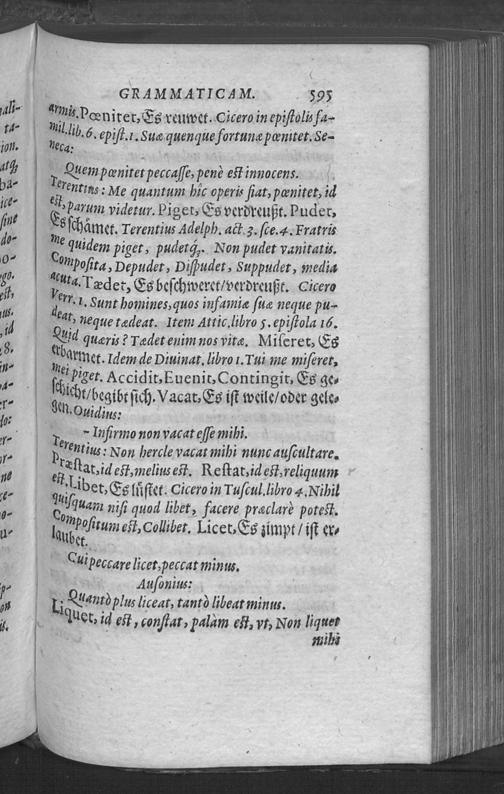 GRAMMATICAM. 595
armis. Pœnitet, Es reuwet. Cicero in epistolis fa-
mil. lib. 6. epist. 1. Suæ quenque fortunæ pœnitet. Se-
neca:
Quem pœnitet peccasse, penè est innocens.
Terentius: Me quantum hîc operis fiat, pœnitet, id
est, parum videtur. Piget, Es verdreußt. Pudet,
Es schämet. Terentius Adelph. act. 3. sce. 4. Fratris
me quidem piget, pudetq́;. Non pudet vanitatis.
Composita, Depudet, Dispudet, Suppudet, media
acuta. Tædet, Es beschweret/verdreußt. Cicero
Verr. 1. Sunt homines, quos infamiæ suæ neque pu-
deat, neque tædeat. Item Attic. libro 5. epistola 16.
Quid quæris? Tædet enim nos vitæ. Miseret, Es
erbarmet. Idem de Diuinat. libro 1. Tui me miseret,
mei piget. Accidit, Euenit, Contingit, Es ge-
schicht/begibt sich. Vacat, Es ist weile/oder gele-
gen. Ouidius:
- Infirmo non vacat esse mihi.
Terentius: Non hercle vacat mihi nunc auscultare.
Præstat, id est, melius est. Restat, id est, reliquum
est. Libet, Es lüstet. Cicero in Tuscul. libro 4. Nihil
quisquam nisi quod libet, facere præclarè potest.
Compositum est, Collibet. Licet, Es zimpt/ist er-
laubet.
Cui peccare licet, peccat minus.
Ausonius:
Quantò plus liceat, tantò libeat minus.
Liquet, id est, constat, palàm est, vt, Non liquet
mihi